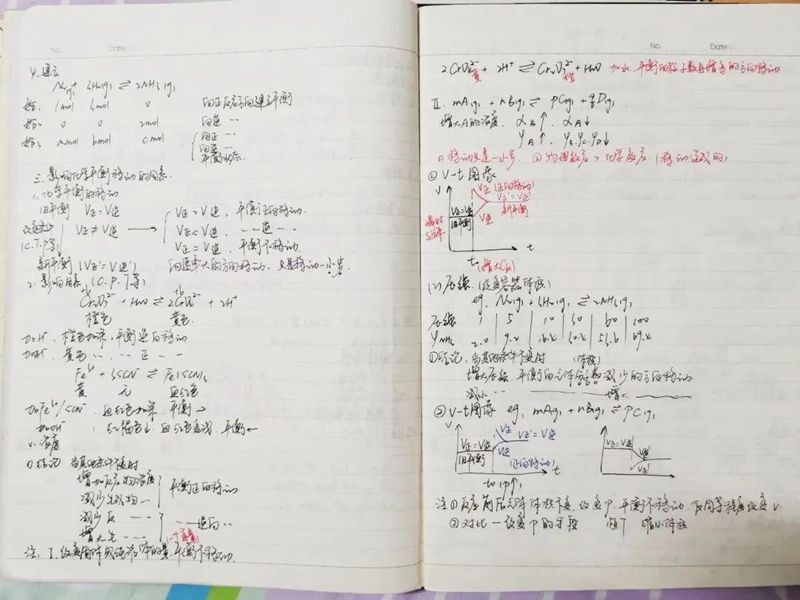 No.
Date
4. 建立
N₂(g) + 3H₂(g) ⇌ 2NH₃(g)
始₁ 1mol 3mol 0 向正反应方向建立平衡
始₂ 0 0 2mol 向逆 ‥
始₃ amol bmol cmol 向正 ‥
向逆 ‥
平衡状态
三. 影响化学平衡移动的因素
1. 化学平衡的移动
旧平衡 V正=V逆
改变条件 V正≠V逆 → V正>V逆, 平衡正向移动
(C.T.P等) V正<V逆, ‥ 逆 ‥
V正=V逆, 平衡不移动
新平衡 (V正'=V逆') 向速率大的方向移动
2. 影响因素 (C.P.T等)
Cr₂O₇²⁻ + H₂O ⇌ 2CrO₄²⁻ + 2H⁺
橙色 黄色
加H⁺, 橙色加深, 平衡逆向移动
加OH⁻, 黄色 ‥ ‥ 正 ‥
Fe³⁺ + 3SCN⁻ ⇌ Fe(SCN)₃
黄 无 血红色
加Fe³⁺/SCN⁻, 血红色加深, 平衡→
加OH⁻ : 红褐色↓ 血红色变浅, 平衡←
(1) 浓度
①结论 当其他条件不变时
增加反应物浓度
减少生成物 ‥ 平衡正向移动
减少反 ‥
增大生 ‥ ‥ 逆向 ‥
注: I. 改变固体或纯液体的量, 平衡不移动
No.
Date
2CrO₄²⁻ + 2H⁺ ⇌ Cr₂O₇²⁻ + H₂O 加水, 平衡向粒子数目增多的方向移动
黄 橙
II. mA(g) + nB(g) ⇌ pC(g) + qD(g)
增大A的浓度, αB↑, αA↓
φA↑, φB.φC.φD↓
②V-t图像
V
V正 (正向移动)
V正=V逆
V正'=V逆'
旧平衡
新平衡
V逆
t₁ (增大C反)
t
(2) 压强 (改变容器体积)
eg. N₂(g) + 3H₂(g) ⇌ 2NH₃(g)
压强 1 5 10 30 60 100
①结论, 当其他条件不变时
增大压强, 平衡向气体分数减少的方向移动
减小 增
②V-t图像 eg. mA(g) + nB(g) ⇌ pC(g)
V
V正=V逆
V正
V正'=V逆'
旧平衡
V逆
(正向移动)
t
V正=V逆
V逆'
V正'
注①反应前后气体体积不变, 改变P, 平衡不移动, 同等程度改变V
②对比 改变P的手段 恒T 缩小体积